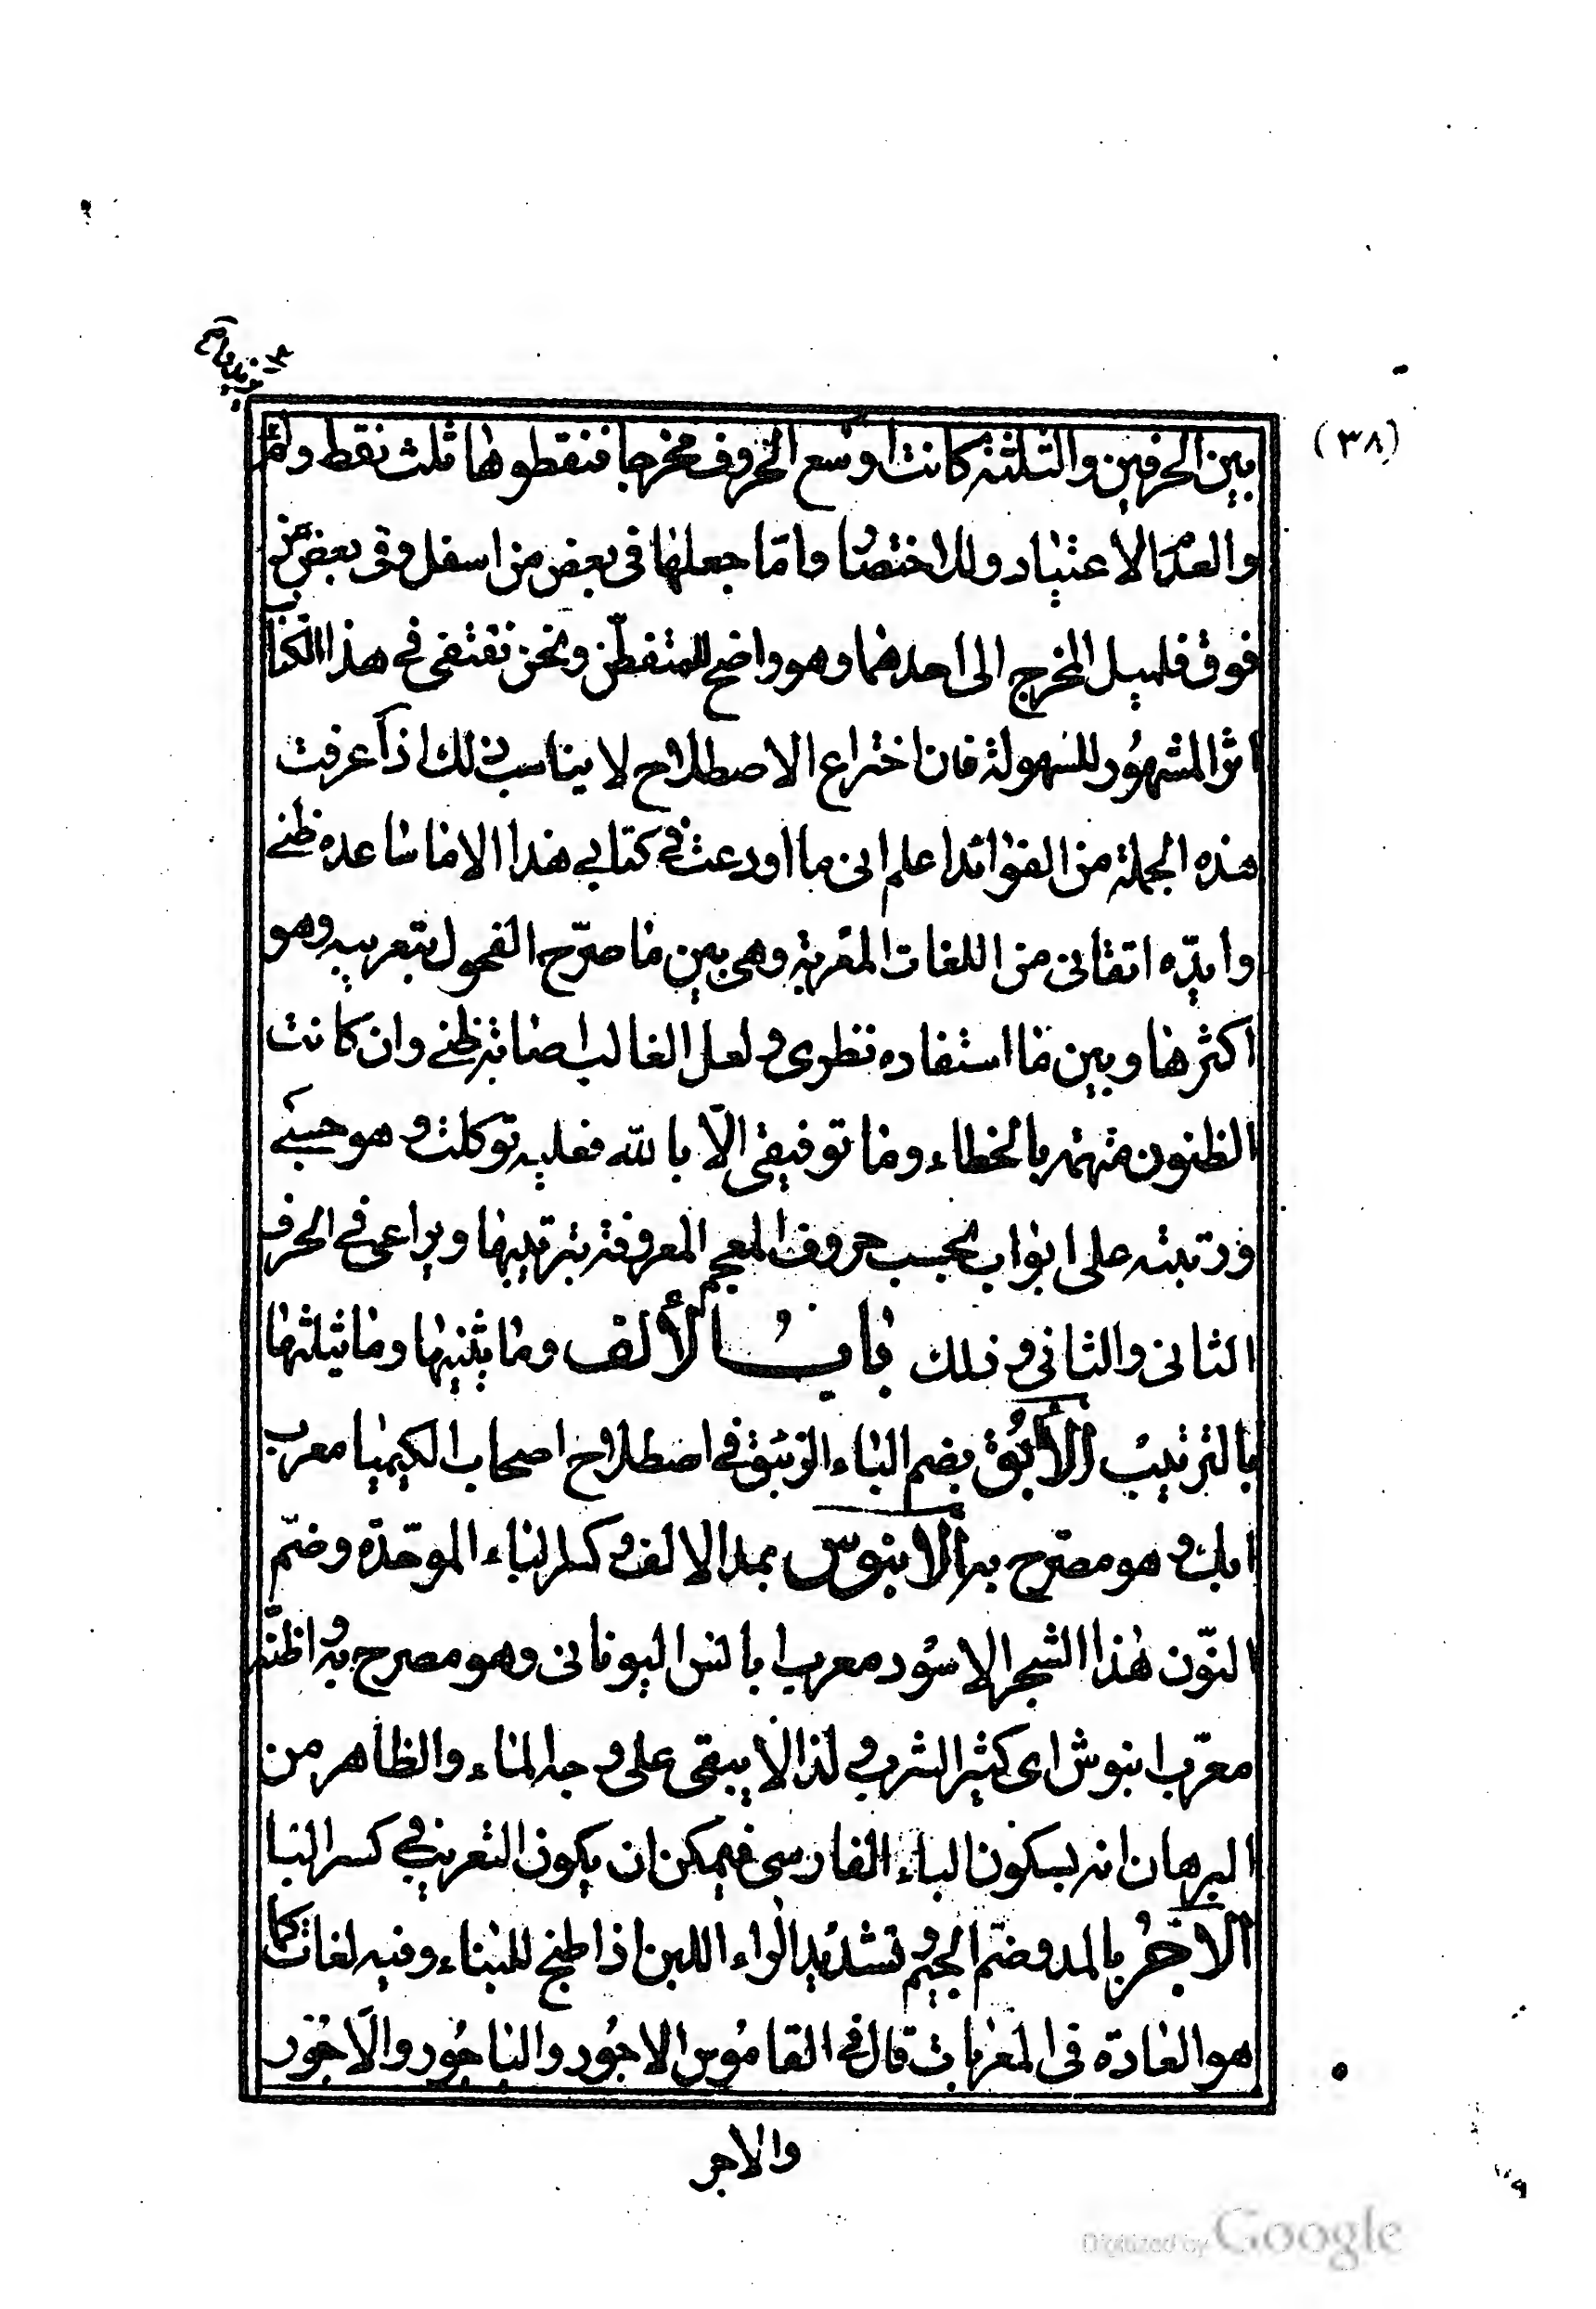 (٣٨)
بين الحرفين والثلثة كانت اوسع الحروف مخرجا فنقطوها ثلث نقط ولم
والعدم الاعتياد وللاختصا واما جعلها فى بعض من اسفل وفى بعض من
فوق فلميل المخرج الى احدهما وهو واضح للمتفطّن ونحن نقتفى فى هذا الكتاب
اثر المشهور للسهولة فان اختراع الاصطلاح لا يناسب ذلك اذا عرفت
هذه الجملة من الفوائد اعلم انى ما اودعت فى كتابى هذا الا ما ساعده ظنى
وايّده اتقانى من اللغات المعربة وهى بين ما صرّح الفحول بتعريبه وهو
اكثرها وبين ما استفاده نظرى ولعل الغالب اصابة ظنى وان كانت
الظنون متهمة بالخطاء وما توفيقى الّا بالله فعليه توكلت وهو حسبى
ورتبته على ابواب بحسب حروف المعجم المعروفة بترتيبها ويراعى فى الحرف
الثانى والثانى وذلك باب الألف وما يثنيها وما يثلثها
بالترتيب الأبُق بضم الباء الزيبق فى اصطلاح اصحاب الكيميا معرب
ابك وهو مصرح به الآبنوس بمد الالف وكسر الباء الموحّدة وضمّ
النّون هذا الشجر الاسود معرب ابانس اليونانى وهو مصرح به واظنّه
معرّب ابنوش اى كثير الشرب ولذا لا يبقى على وجه الماء والظاهر من
البرهان انه بسكون الباء الفارسى فيمكن ان يكون التعريب فى كسر البا
الآجُر بالمد وضمّ الجيم وتشديد الراء اللبن اذا طبخ للبناء وفيه لغات كما
هو العادة فى المعربات قال فى القاموس الاجُور والياجُور والآجُور
والاجر
Digitized by Google